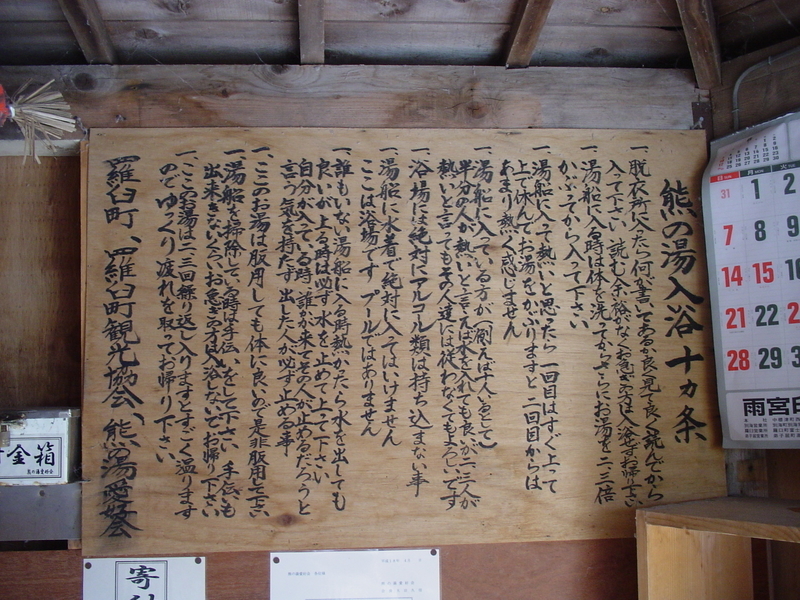 熊の湯入浴十ヵ条
一、脱衣所に入ったら何が書いてあるか良く見て良く読んでから
入って下さい 読む余裕がなくお急ぎの方は入浴せずお帰り下さい
一、湯船に入る時は体を洗ってからさらにお湯を二、三倍
かぶってから入って下さい
一、湯船に入って熱いと思ったら 一回目はすぐ上って
上で休んでお湯をかぶりますと 二回目からは
あまり熱く感じません
一、湯船に入っている方が(例えば十人いるとして)
半分の人が熱いと言えば水を入れても良いが 二、三人が
熱いと言ってもその人達には従わなくてもよろしいです
一、浴場には絶対にアルコール類は持ち込まない事
一、湯船に水着で絶対に入ってはいけません
ここは浴場です プールではありません
一、誰もいない湯船に入る時熱かったら水を出しても
良いが上る時は必ず水を止めて上って下さい
自分が入っている時誰かが来てその人が止めるだろうと
言う気を持たず 出した人が必ず止める事
一、ここのお湯は服用しても体に良いので是非服用して下さい
一、湯船を掃除している時は手伝いをして下さい 手伝いも
出来きないくらいお急ぎの方は入浴しないでお帰り下さい
一、ここのお湯は二、三回繰り返し入りますとすごく温ります
のでゆっくり疲れを取ってお帰り下さい。
羅臼町、羅臼町観光協会、熊の湯愛好会
31 1 2
7 8 9
14 15 16
21 22 23
28 29 30
雨宮
金箱
寄